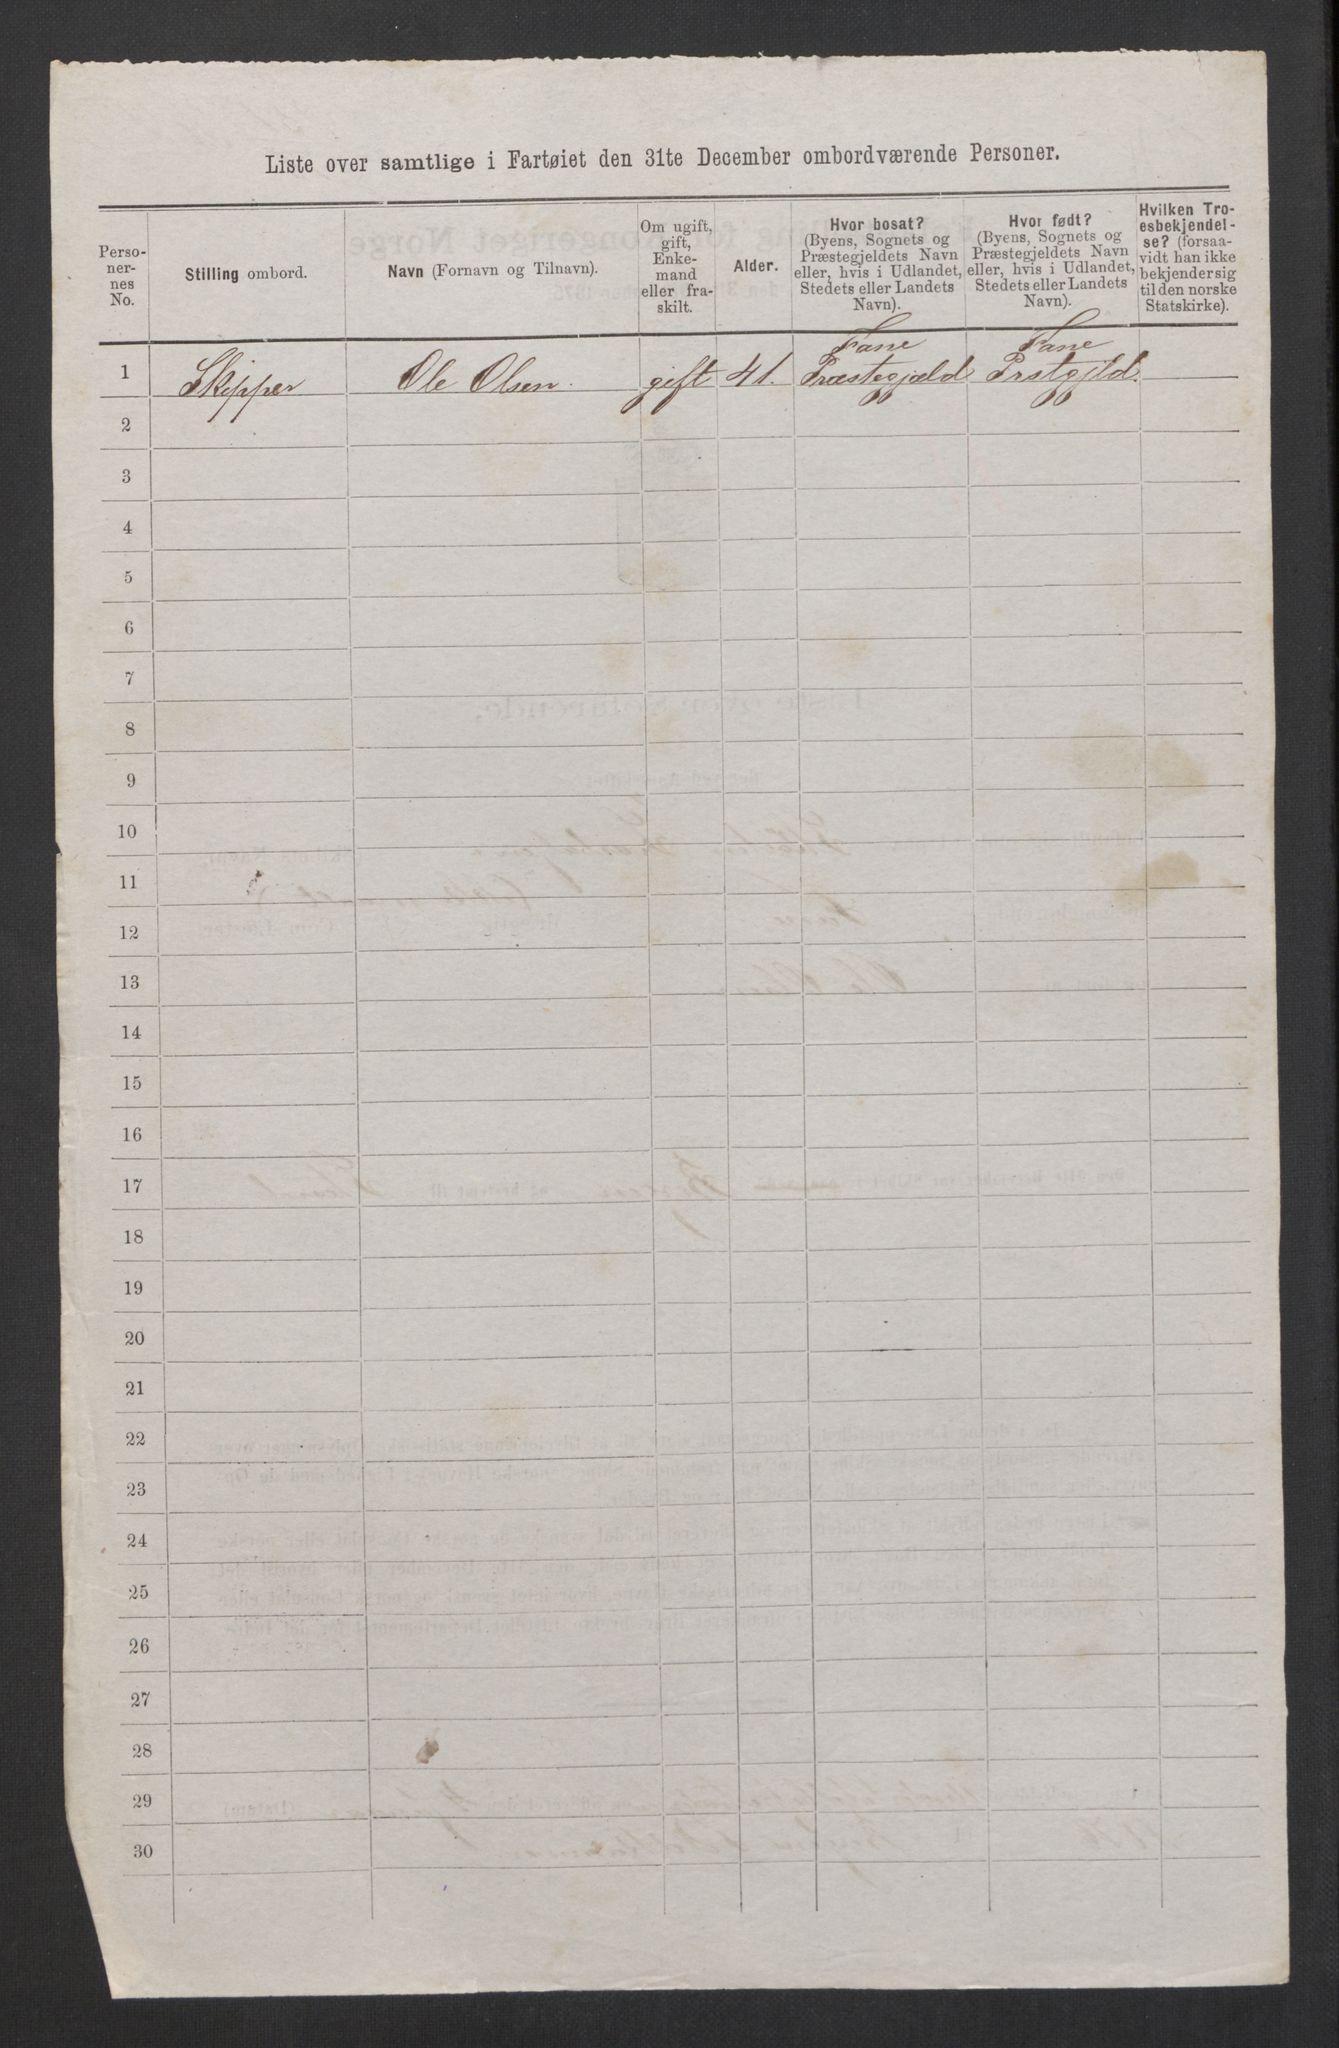 Liste over samtlige i Fartøiet den 31te December ombordværende Personer.
Perso-
ner-
nes
No.
Stilling ombord.
Navn (Fornavn og Tilnavn).
Om ugift,
gift,
Enke-
mand
eller fra-
skilt.
Alder.
Hvor bosat?
(Byens, Sognets og
Præstegjeldets Navn
eller, hvis i Udlandet,
Stedets eller Landets
Navn).
Hvor født?
(Byens, Sognets og
Præstegjeldets Navn
eller, hvis i Udlandet,
Stedets eller Landets
Navn).
Hvilken Tro-
esbekjendel-
se? (forsaa-
vidt han ikke
bekjender sig
til den norske
Statskirke).
1 Skipper Ole Olsen. gift 41. Fane Præstegjæld Fane Prstgjld.
2
3
4
5
6
7
8
9
10
11
12
13
14
15
16
17
18
19
20
21
22
23
24
25
26
27
28
29
30